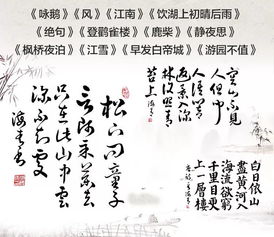 《咏鹅》《风》《江南》《饮湖上初晴后雨》
《绝句》《登鹳雀楼》《鹿柴》《静夜思》
《枫桥夜泊》《江雪》《早发白帝城》《游园不值》
空山不見
人但聞
人語響
返景入深
林復照青
苔上
松下問童子
言師采藥去
只在此山中雲
深不知處
白日依山
盡黄河入
海流欲窮
千里目更
上一層樓